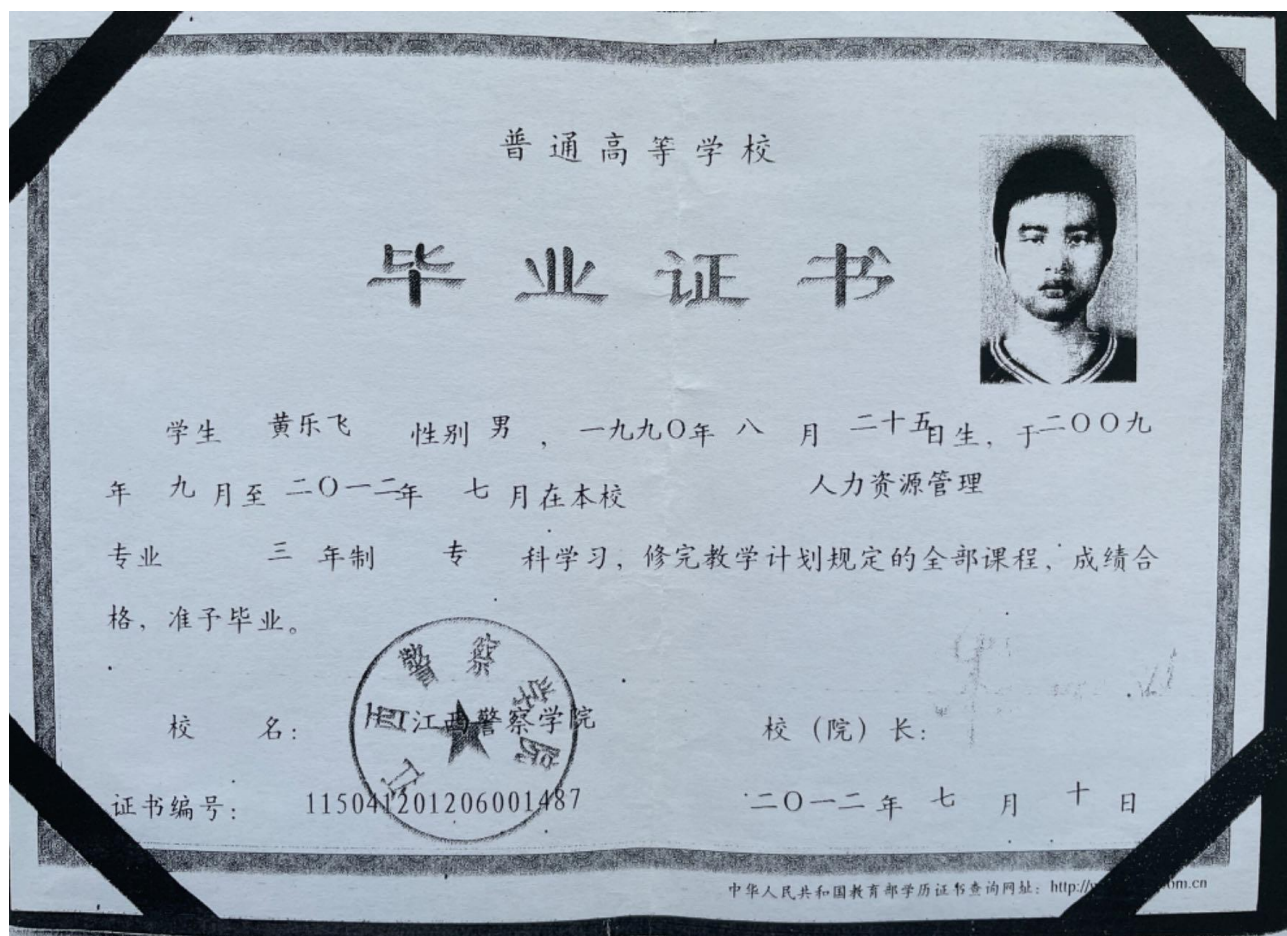 普通高等学校
毕业证书
学生 黄乐飞 性别 男 ，一九九〇年 八 月 二十五日生，于二〇〇九
年 九 月至 二〇一二年 七 月在本校 人力资源管理
专业 三 年制 专 科学习，修完教学计划规定的全部课程，成绩合
格，准予毕业。
江西警察学院
校 名： 江西警察学院 校（院）长：
证书编号： 115041201206001487 二〇一二年 七 月 十 日
中华人民共和国教育部学历证书查询网址：http://w om.cn